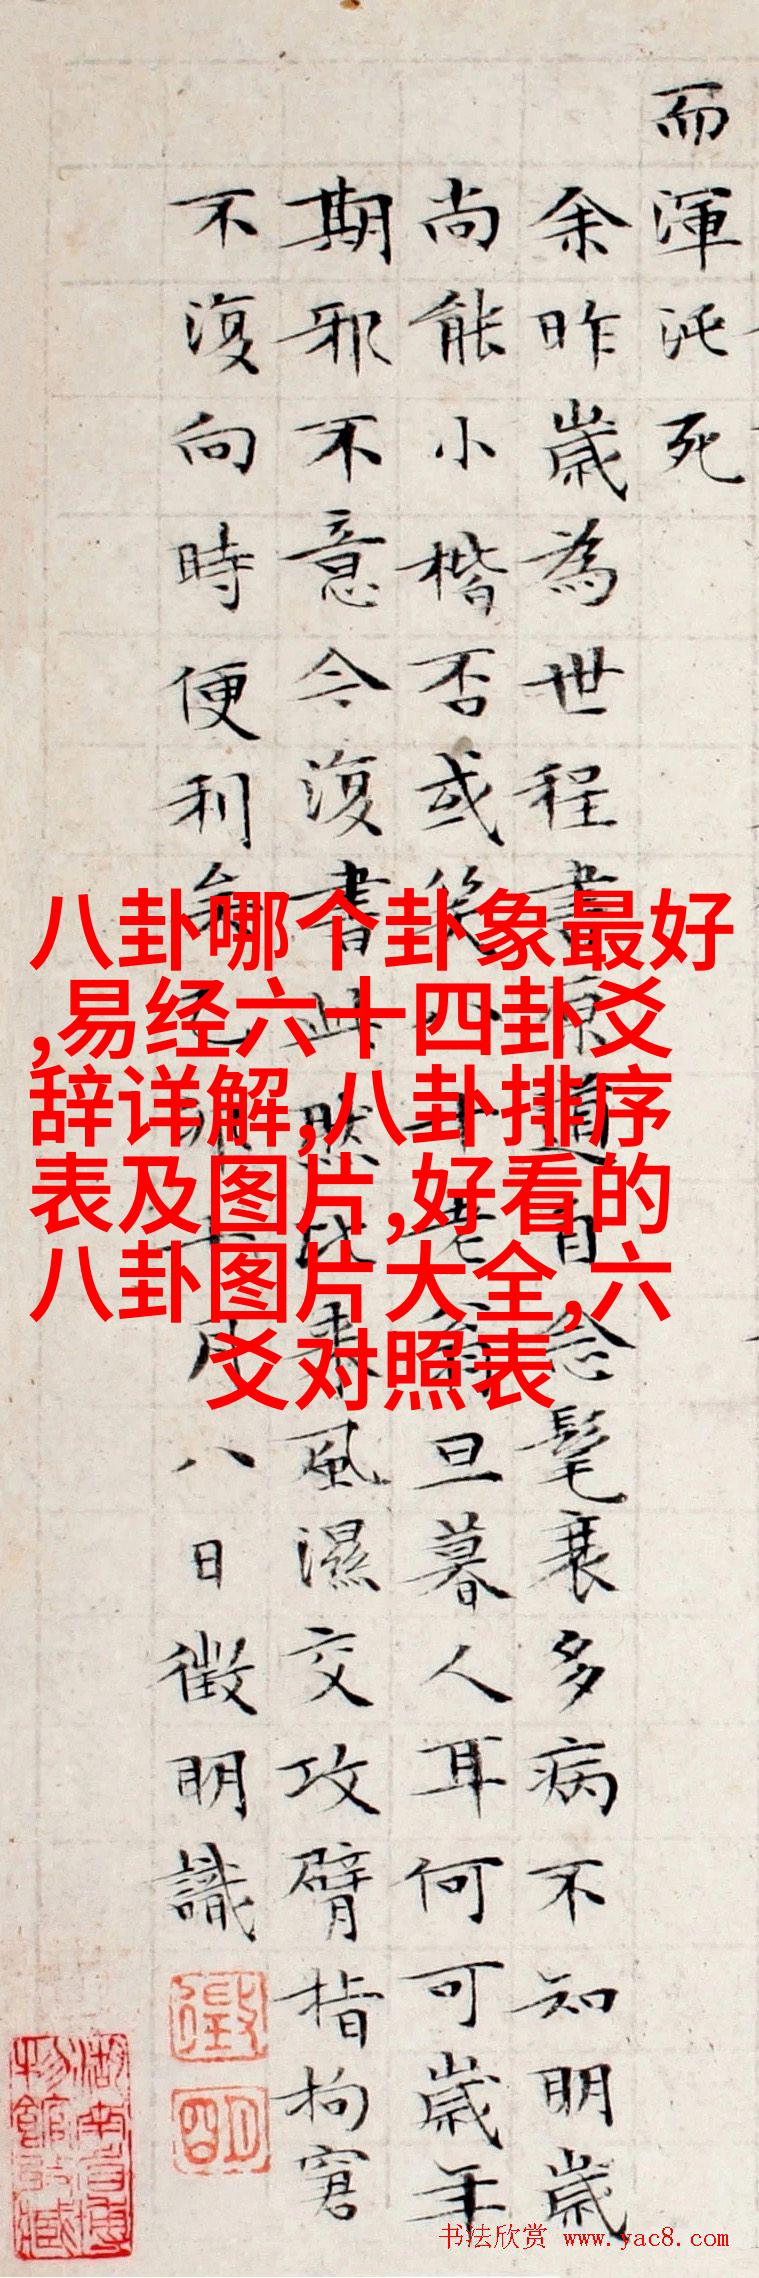 而渾沌死
余昨歲為世程書原道自念髦衰多病不知明歲
尚能小楷否或笑八十老翁旦暮人耳何可歲年
期邪不意今復書此然比來風濕交攻臂指拘窘
不復向時便利矣十月八日徵明識
八卦哪个卦象最好
,易经六十四卦爻
辞详解,八卦排序
表及图片,好看的
八卦图片大全,六
爻对照表
书法欣赏 www.yac8.com